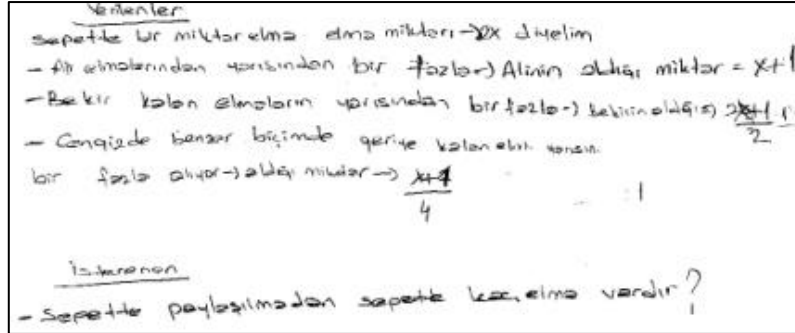 Verilenler
Sepette bir miktar elma elma miktarı → 2x diyelim
- Ali elmalarından yarısından bir fazla → Alinin aldığı miktar = x+1
- Bekir kalan elmaların yarısından bir fazla → bekirin aldığı
- Cengizde benzer biçimde geriye kalan yarısın
bir fazla alıyor → aldığı miktar → x+1/4
İstenenen
- Sepette paylaşılmadan sepette kaç elma vardır?